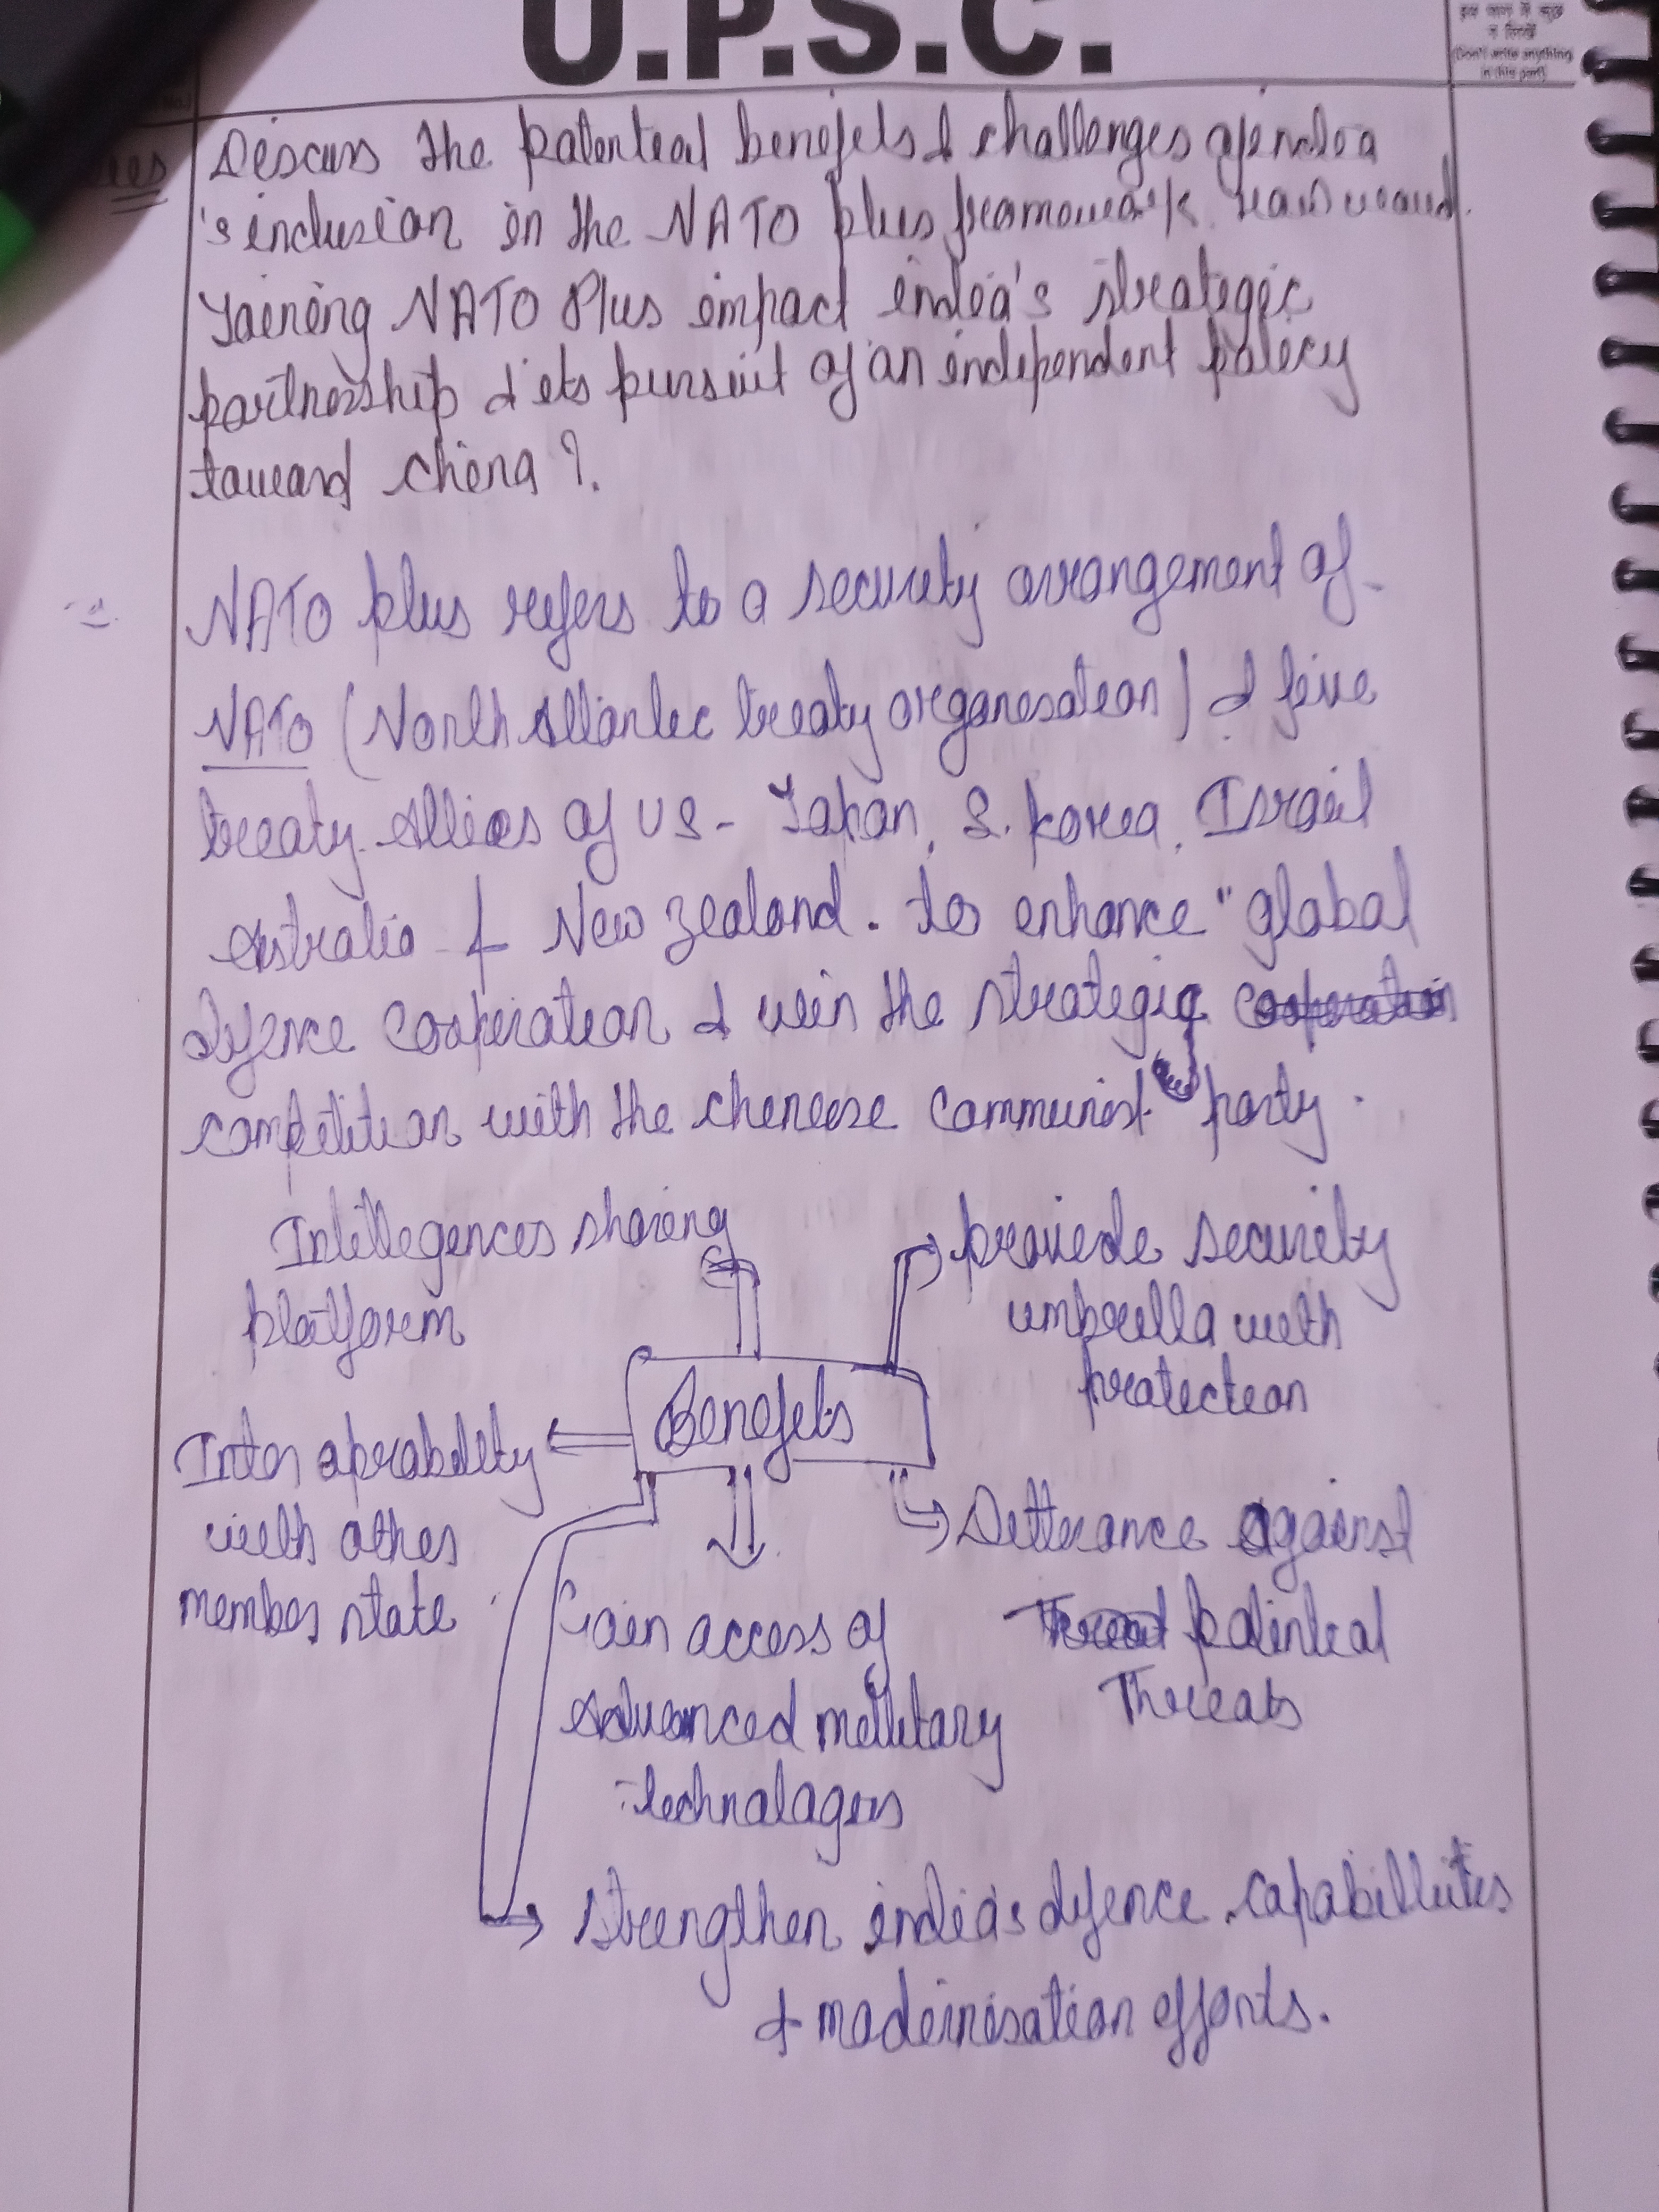 U.P.S.C.
इस भाग में कुछ
न लिखें
(Don't write anything
in this part)
Discuss the potential benefits & challenges of india
's inclusion in the NATO plus framework. How would
Joining NATO Plus impact india's strategic
partnership & its pursuit of an independent policy
toward china?
NATO plus refers to a security arrangement of
NATO (North Atlantic treaty organisation) & five
treaty Allies of US - Japan, S. Korea, Israil
Astralia & New Zealand. to enhance "global
defence cooperation & win the strategic cooperation
competition with the chineese communist party.
Intellegences sharing
platform
provide security
umbrella with
protection
Benefits
Inter oprability
with other
member state
Detterance against
Threat potential
Threats
Gain access of
Advanced millitary
technologies
Strengthen india's defence capabillities
& modernisation efforts.